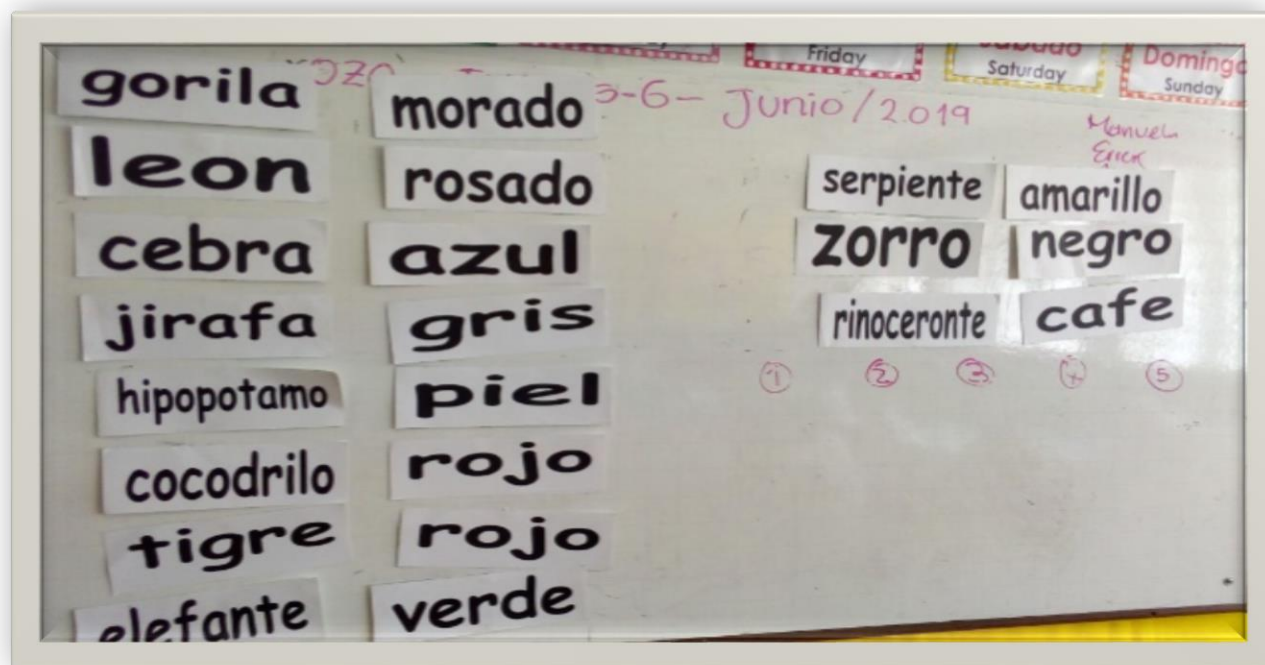 Friday
Sábado
Saturday
Domingo
Sunday
3-6- Junio/2019
Manuel
Erick
gorila
leon
cebra
jirafa
hipopotamo
cocodrilo
tigre
elefante
morado
rosado
azul
gris
piel
rojo
rojo
verde
serpiente amarillo
zorro negro
rinoceronte cafe
1 2 3 4 5